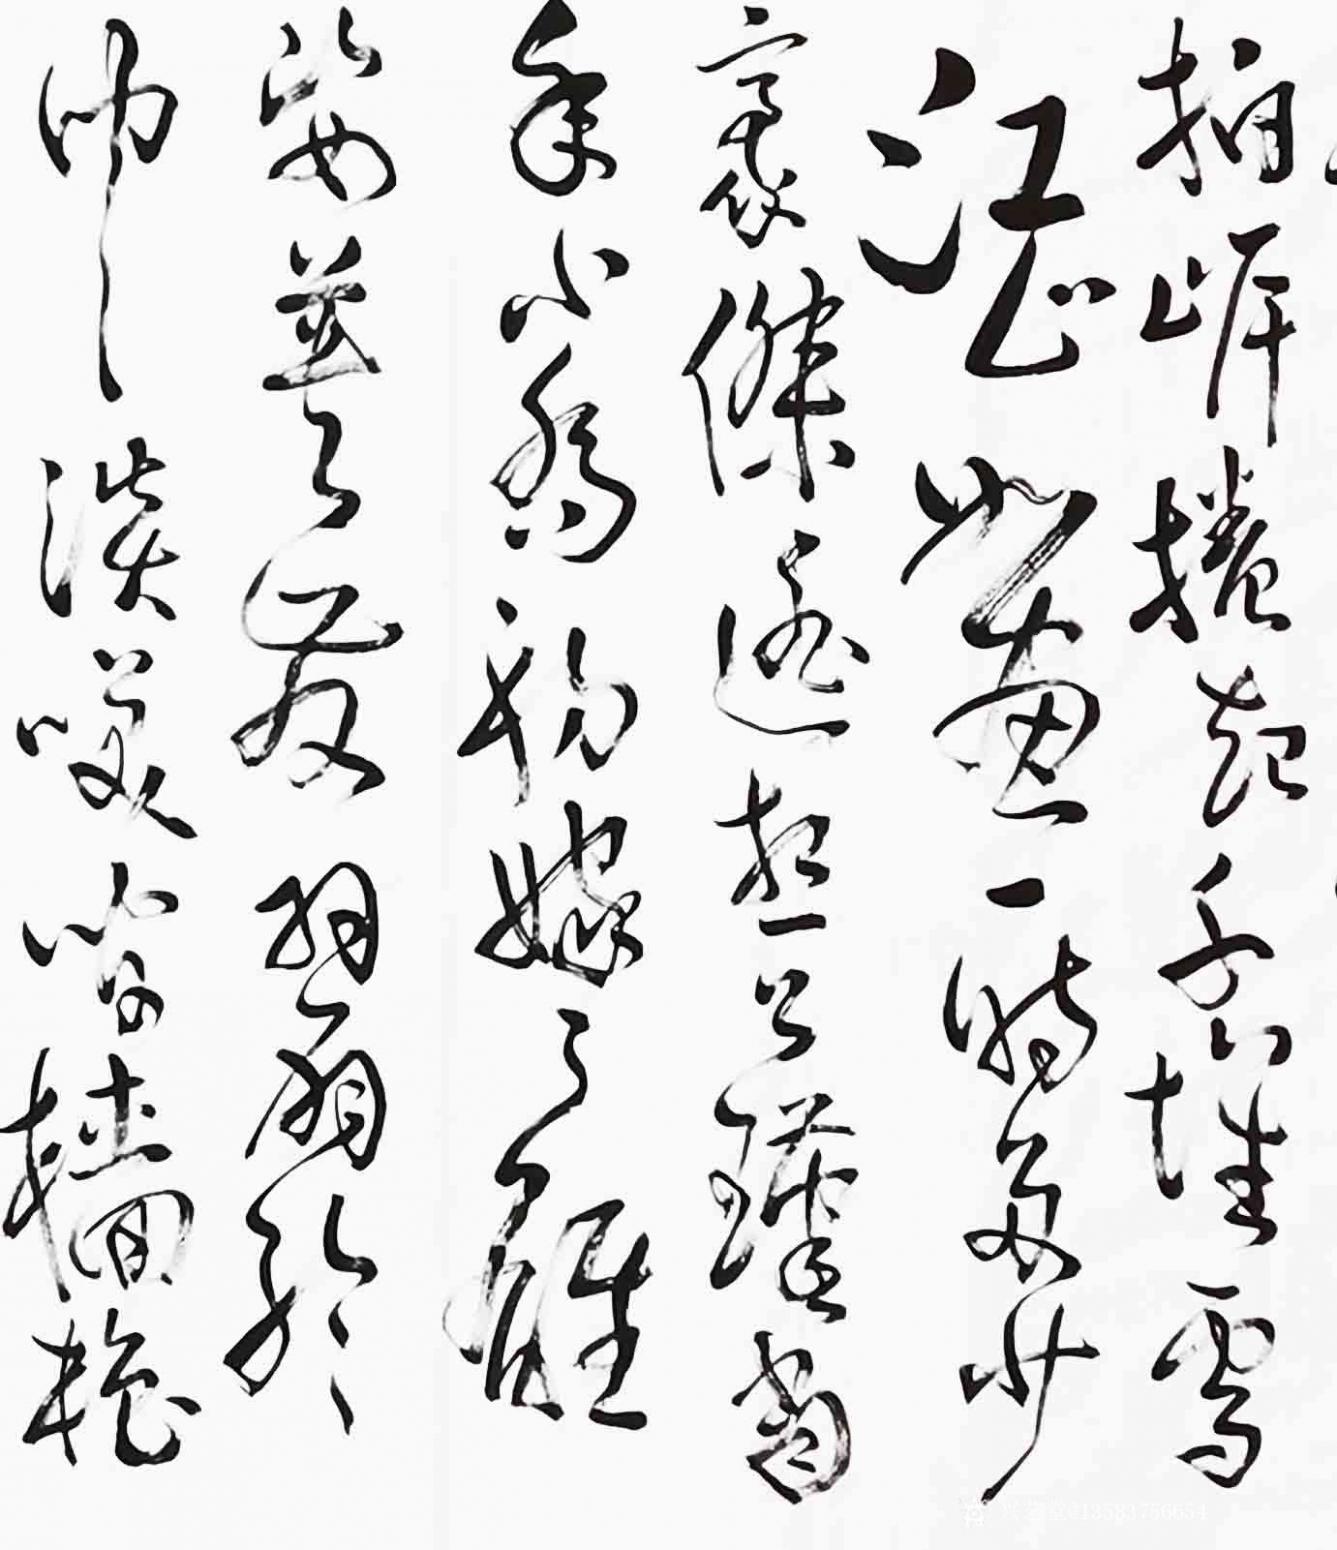 拍岸捲起千堆雪
江山如畫一時多少
豪傑遙想公瑾當
年小喬初嫁了雄
姿英發羽扇綸
巾談笑間檣櫓
13583756654